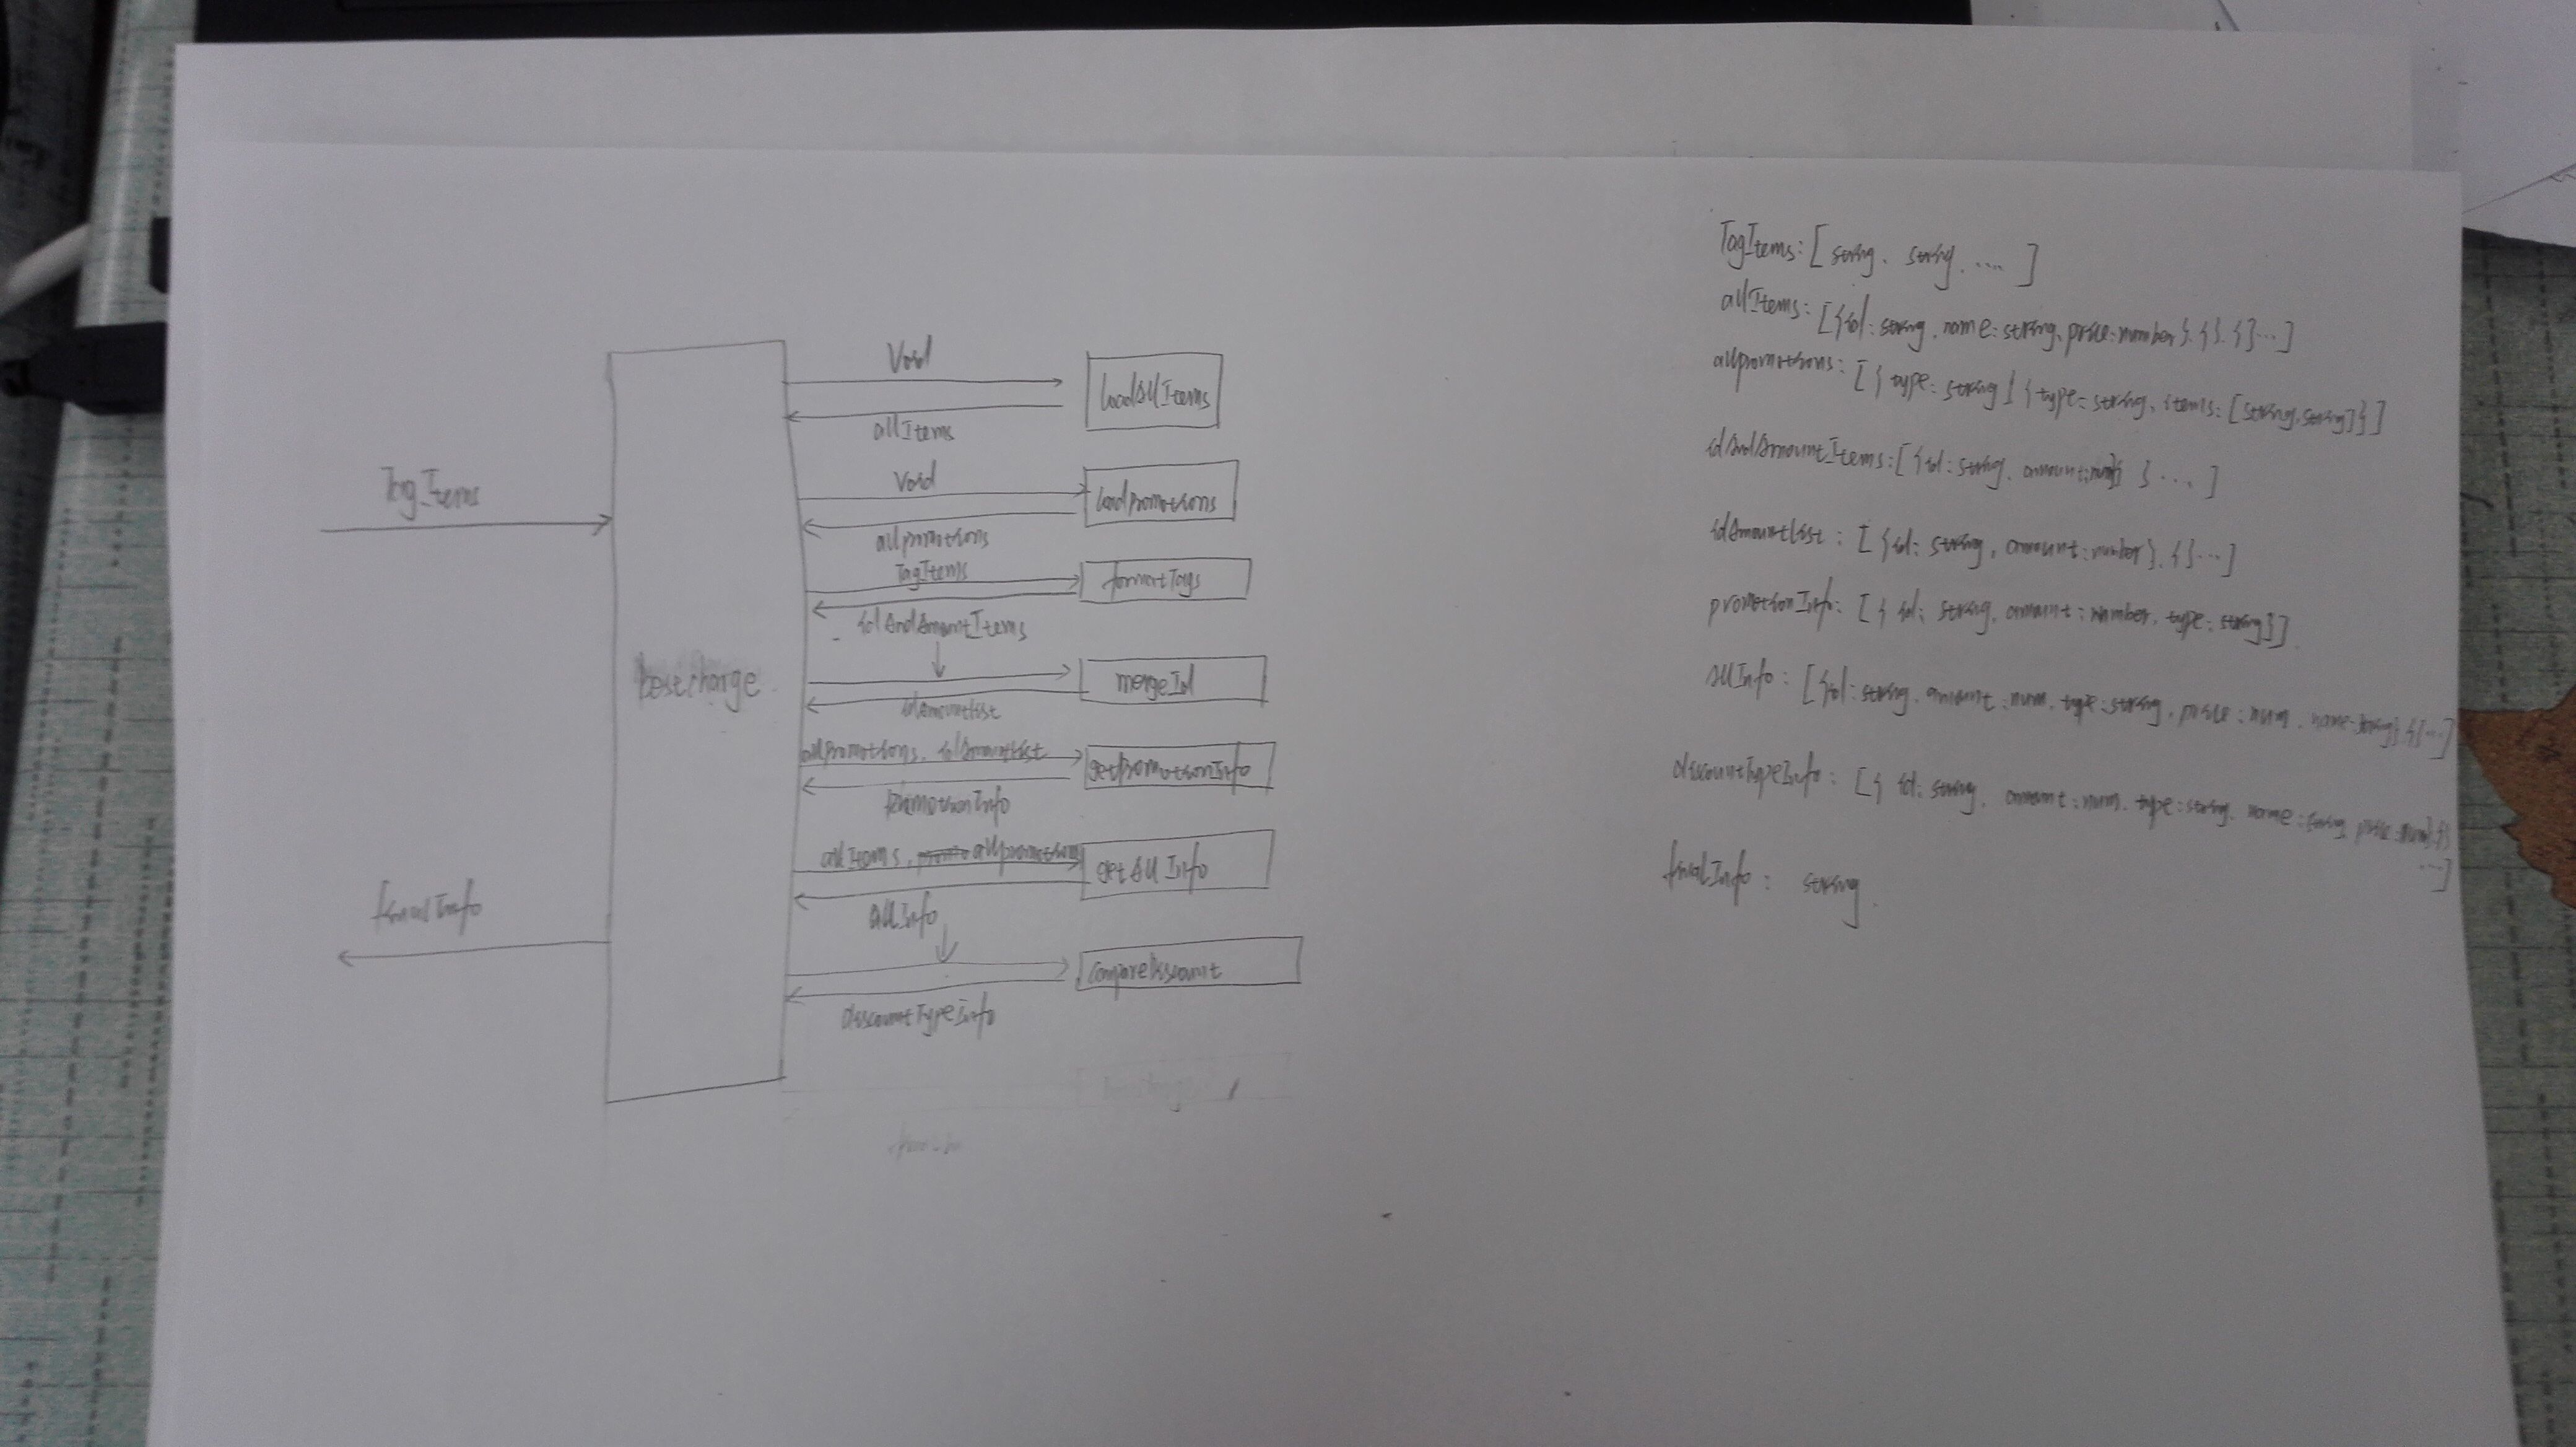 TagItems
finalInfo
bestcharge
Void
loadAllItems
allItems
Void
loadpromotions
allpromotions
TagItems
formatTags
idAndAmountItems
mergeId
idAmountlist
allPromotions, idAmountlist
getPromotionInfo
PromotionInfo
allItems, promo allpromotions
getAllInfo
allInfo
compareDiscount
discountTypeInfo
TagItems: [string, string, .... ]
allItems: [{id: string, name: string, price: number}, {}, {}...]
allpromotions: [{type: string} {type: string, items: [string, string]}]
idAndAmountItems: [{id: string, amount: num} } ..., ]
idAmountlist: [{id: string, amount: number}, {}...]
promotionInfo: [{ id: string, amount: number, type: string}]
allInfo: [{id: string, amount: num, type: string, price: num, name: string},{}...]
discountTypeInfo: [{ id: string, amount: num, type: string, name: string, price: num},{}
...]
finalInfo: string.